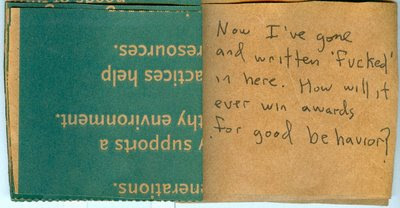 nerations.
y supports a
thy environment.
actices help
resources.
Now I've gone
and written 'fucked'
in here. How will it
ever win awards
for good behavior?